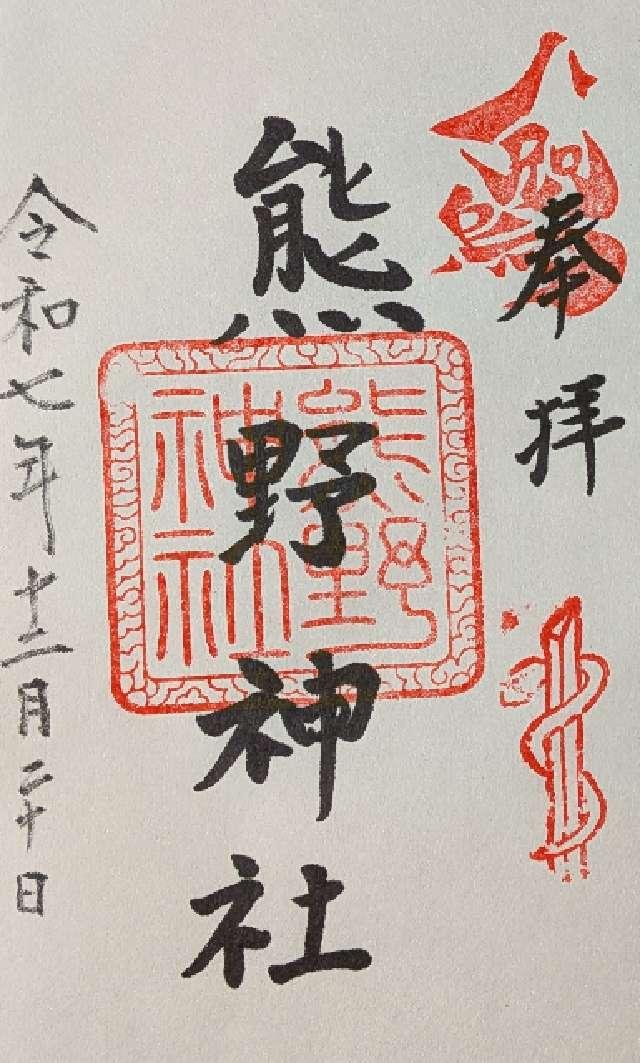 奉拝
熊野神社
熊野
神社
令和七年十二月二十日